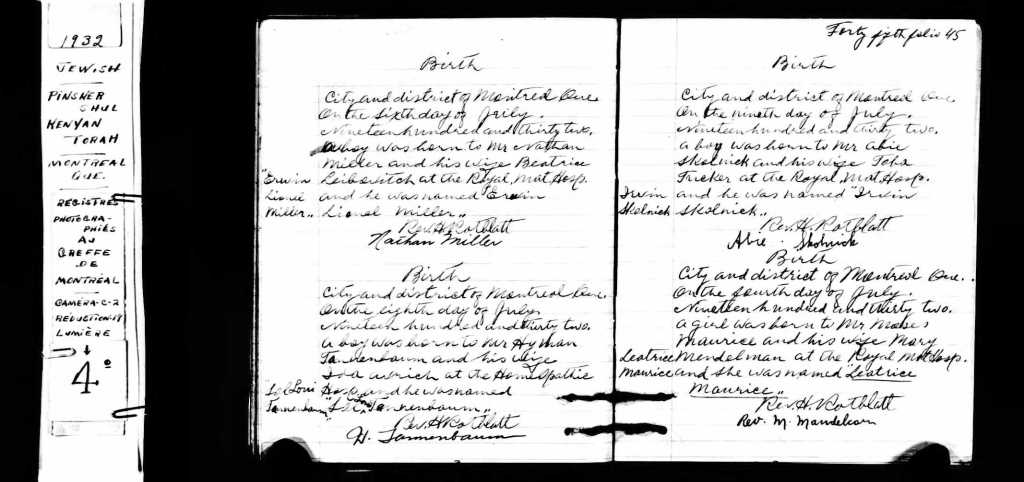 1932
JEWISH
PINSKER
SHUL
KENYAN
TORAH
MONTREAL
QUE.
REGISTRES
PHOTOGRA-
PHIÉS
AU
GREFFE
DE
MONTRÉAL
CAMERA-C-2
REDUCTION-19
LUMIÈRE
4º
Birth
City and district of Montreal Que.
On the sixth day of July.
Nineteen hundred and thirty two.
a boy was born to Mr Nathan
Miller and his wife Beatrice
"Erwin Leibovitch at the Royal Mat Hosp.
Lionel and he was named "Erwin
Miller" Lional Miller"
Rev. H. Rotblatt
Nathan Miller
Birth
City and district of Montreal Que.
On the eighth day of July.
Nineteen hundred and thirty two.
a boy was born to Mr Hyman
Tannenbaum and his wife
at the Homeopathic
Hosp. and he was named
Tannenbaum"
Rev. H. Rotblatt
H. Tannenbaum
Forty fifth folio 45
Birth
City and district of Montreal Que.
On the nineth day of July.
Nineteen hundred and thirty two.
a boy was born to Mr Abie
Skolnick and his wife Toba
Fucker at the Royal Mat. Hosp.
Irvin and he was named "Irvin
Skolnick Skolnick"
Rev. H. Rotblatt
Abie Skolnick
Birth
City and district of Montreal Que.
On the fourth day of July.
Nineteen hundred and thirty two.
a girl was born to Mr Moses
Maurice and his wife Mary
Leatrice Mendelman at the Royal Mat Hosp.
Maurice and she was named "Leatrice
Maurice"
Rev. H. Rotblatt
Rev. M. Mandelcorn